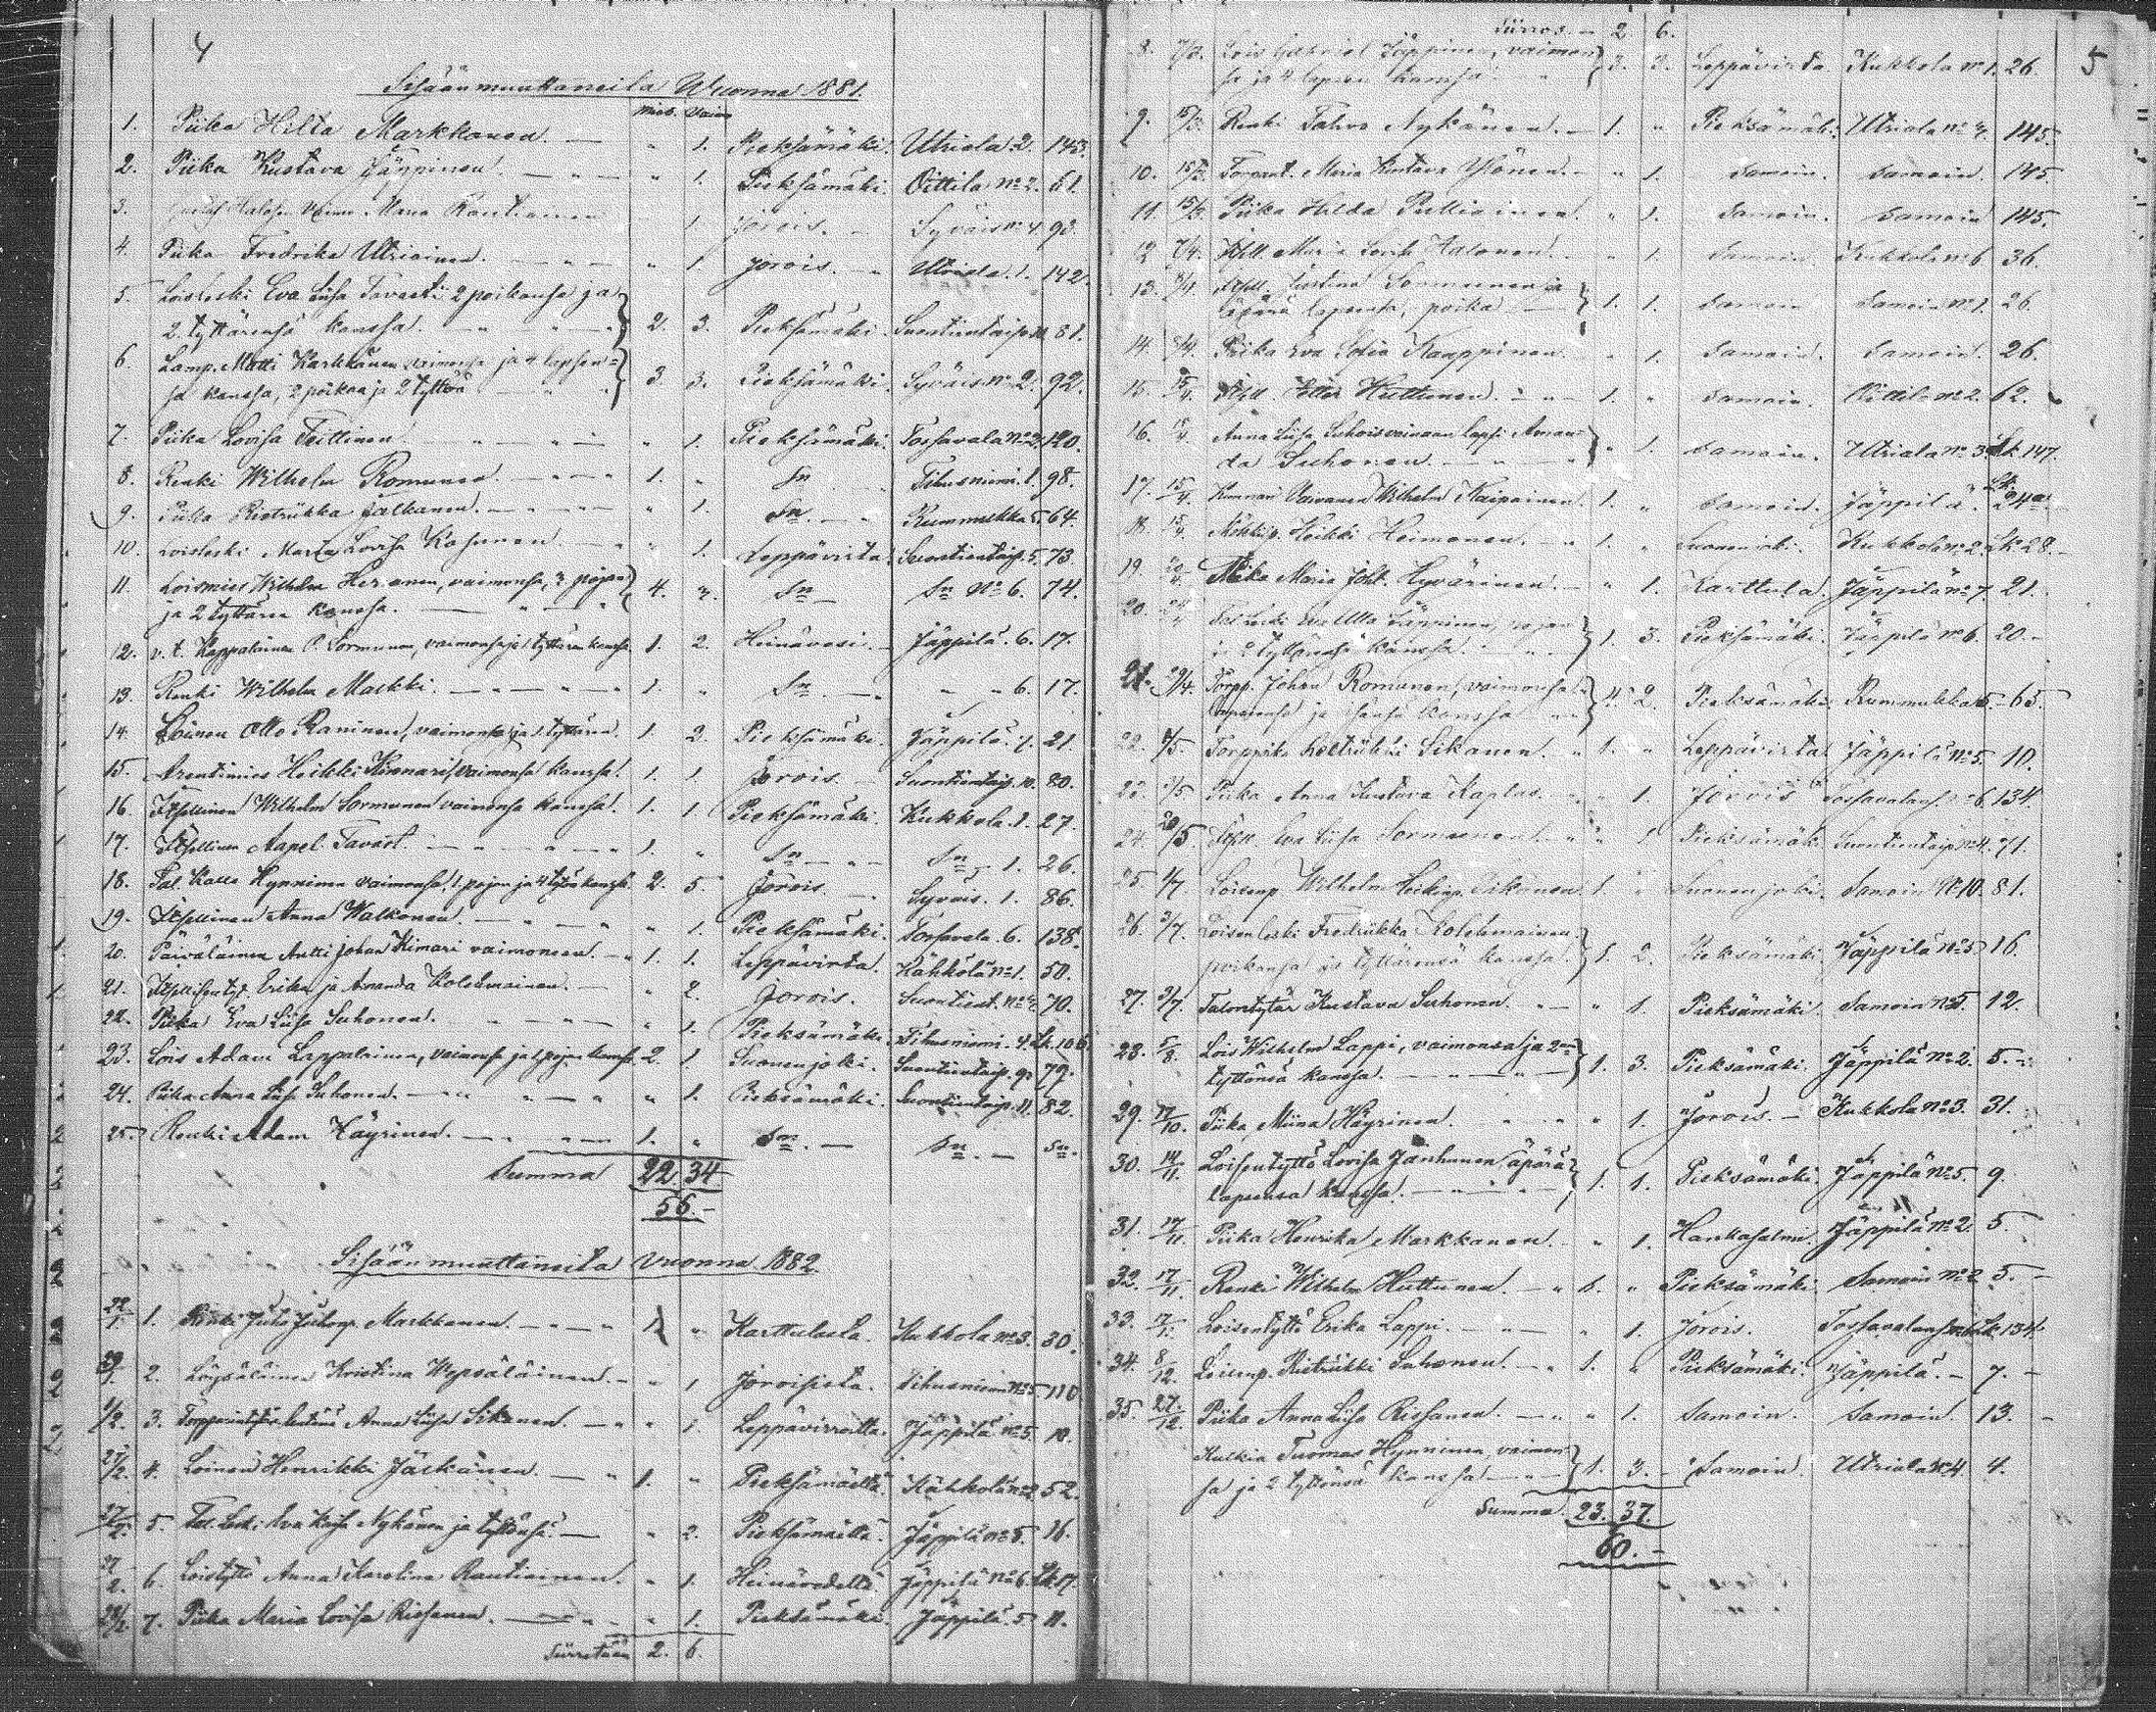 4
Sisäänmuuttaneita Wuonna 1881.
miesp. vaimop.
1. Piika Hilta Markkanen. — " 1. Pieksämäki. Utriala. 2. 143.
2. Piika Kustava Jäppinen. — " — " 1. Pieksämäki. Oittila No 2. 61.
3. Halosen Vaimo Maria Rautiainen 1. Jorois. — Syväis No 4. 93.
4. Piika Fredrika Utriainen. — " — " 1. Jorois. — Utriala. 1. 142.
5. Loisleski Eva Liisa Tavasti 2 poikansa ja
2 tyttärensä kanssa. — " — 2. 3. Pieksämäki. Suontientaip. 10. 81.
6. Lamp. Matti Karkkänen vaimonsa ja 4 lapsen-
sa kanssa, 2 poikaa ja 2 tyttöä 3. 3. Pieksämäki. Syväis No 2. 92.
7. Piika Lovisa Teittinen — " — " 1. Pieksämäki. Tossavala No 2. 120.
8. Renki Wilhelm Romunen. — " — 1. " Sn Tihusniemi. 1. 98.
9. Piika Ristriikka Jalkanen. — " — " 1. Sn. — Rummukka 5. 64.
10. Loisleski Maria Lovisa Kosunen — " 1. Leppävirta. Suontientaip. 5. 73.
11. Loismies Wilhelm Heranen, vaimonsa, 3 pojan
ja 2 tyttären kanssa. — " — 4. 3. Sn — Sn No 6. 74.
12. v. t. Kappalainen O. Sormunen, vaimonsa ja 1 tyttären kanssa. 1. 2. Heinävesi. — Jäppilä. 6. 17.
13. Renki Wilhelm Markki. — " — 1. " Sn — " " 6. 17.
14. Loinen Otto Raninen, vaimonsa ja 1 tyttären 1. 2. Pieksämäki. Jäppilä. 7. 21.
15. Arentimies Heikki Kinnari vaimonsa kanssa. 1. 1. Jorois. — Suontientaip. 10. 80.
16. Itsellinen Wilhelm Sormunen vaimonsa kanssa. 1. 1. Pieksämäki. Kukkola. 1. 27.
17. Itsellinen Aapel Tavast. — " — 1. " Sn — " — Sn — 1. 26.
18. Tal. Kalle Hynninen vaimonsa, 1 pojan ja 4 tytön kanssa. 2. 5. Jorois — Syväis. 1. 86.
19. Itsellinen Anna Walkonen. — " — " 1. Pieksämäki. Tossavala. 6. 138.
20. Päiväläinen Antti Johan Kinnari vaimoneen. — 1. 1. Leppävirta. Kähkölä No 1. 50.
21. Itsellisentyt. Erika ja Amanda Kolehmainen. — " 2. Jorois. Suontient. No 4. 70.
22. Piika Eva Liisa Suhonen. — " — " 1. Pieksämäki. Tihusniemi. 4. Lk. 106
23. Lois Adam Lappalainen, vaimonsa ja 1 pojan kanssa. 2. 1. Suonenjoki. Suontientaip. 9. 79.
24. Piika Anna Liisa Suhonen. — " — " 1. Pieksämäki. Suontientaip. 11. 82.
25. Renki Adam Häyrinen. — " — 1. " Sn. — Sn. — Sn.
Summa 22. 34
56. —
Sisäänmuuttaneita vuonna 1882.
22/1. 1. Renki Juho Juhonp. Markkanen. — " — 1. " Karttulasta. Kukkola No 3. 30.
2. Löysäläinen Kristina Wepsäläinen. — " 1 Joroisista. Tihusniemi No 5. 110
3. Anna Liisa Sikanen. — " 1. Leppävirroilta. Jäppilä No 5. 10.
27/2. 4. Loinen Henrikki Jäskänen. — 1. " Pieksämäeltä. Kähkölä No 2. 52.
27/2. 5. Tal. Leski Eva Kaisa Nykänen ja tyttönsä — " 2. Pieksämäeltä. Jäppilä No 5. 16.
27/2. 6. Loistyttö Anna Karolina Rautiainen. " 1. Heinävedeltä. Jäppilä No 6. Lk. 17.
28/2. 7. Piika Maria Lovisa Riessanen. — " 1. Pieksämäki. Jäppilä. 5. 11.
Siirretään 2. 6.
5
Siirros. — 2 6.
8. 7/3. Lois Gabriel Jäppinen, vaimon-
sa ja 4 lapsen kanssa. 3. 3. Leppävirta. Kukkola No 1. 26.
9. 15/3. Renki Tahvo Nykänen. — 1. " Pieksämäki. Utriala No 4. 145.
10. 15/3. Torpant. Maria Kustava Ylönen. — " 1. Samoin. Samoin. 145.
11. 15/3. Piika Hilda Pulliainen. " 1. Samoin. Samoin 145.
12 7/4. Itsell. Maria Lovisa Aalonen. " 1. Samoin. Kukkola No 6 36.
13. Itsell. Kristina Sormunen ja
äpärä lapsensa, poika — 1. 1. Samoin Samoin No 1. 26.
14. 8/4. Piika Eva Sofia Kauppinen. " 1. Samoin. Samoin. 26.
15. 15/4. Itsell. Petter Huttunen. — " — 1. " Samoin. Oittila No 2. 62.
16. 15/4. Anna Liisa Suhois vainaan lapsi Aman-
da Suhonen. — " — " 1. Samoin. Utriala No 3. Lk 147.
17. 15/4. Wilhelm Kaipainen. 1. " Samoin. Jäppilä. Lk. 24a.
18. 15/4. Mökkip. Heikki Heimonen. — " 1. " Suonenjoki. Kukkola No 2. Lk 28. —
19. 20/4. Piika Maria Joh. Hyvärinen. — " 1. Karttula. Jäppilä No 7. 21.
20. Tal. Leski Eva Ulla Jäppinen, pojan
ja 2 tyttärensä kanssa. 1. 3. Pieksämäki. Jäppilä No 6. 20. —
21. 29/4. Torpp. Johan Romunen, vaimonsa
lapsensa ja kanssa 2. Pieksämäki. Rummukka 5. — 65.
22. Torppika Sikanen. " 1. " Leppävirta. Jäppilä No 5. 10.
23. 3/5 Piika Anna Kustava Kaplas. — " 1. Jorois Tossavalans. No 6. 134.
24. 20/5. Itsell. Eva Liisa Sormunen. — " 1 Pieksämäki. Suontientaip. No 4. 71.
25 1/7. Loisenp. Wilhelm Heikinp. Sikanen 1. " Suonenjoki. Samoin No 10. 81.
26. 3/7. Loisen leski Fredriikka Kolehmainen
poikansa ja tyttärensä kanssa. 1. 2. Pieksämäki. Jäppilä No 5. 16.
27. 3/7. Talontytär Kustava Suhonen. " — " 1. Pieksämäki. Samoin No 5. 12.
28. 5/8. Lois Wilhelm Lappi, vaimonsa ja 2
tyttönsä kanssa. — " — 1. 3. Pieksämäki. Jäppilä No 2. 5. —
29. 17/10. Piika Miina Häyrinen. " " 1. Jorois. — Kukkola No 3. 31.
30. 14/11. Loisentyttö Lovisa Janhunen äpärä
lapsensa kanssa. — " — 1. 1. Pieksämäki. Jäppilä No 5. 9.
31. 17/11. Piika Henrika Markkanen. " 1. Hankasalmi. Jäppilä No 2. 5.
32. 17/11. Renki Wilhelm Huttunen. — " 1. " Pieksämäki. Samoin No 2 5. —
33. Loisentyttö Erika Lappi. — " — " 1. Jorois. Tossavalans. Lk. 134.
34. 8/12. Loisenp. Ristriikki Suhonen. — " 1. " Pieksämäki. Jäppilä. — 7. —
35. 27/12. Piika Anna Liisa Riessanen. — " " 1. Samoin. Samoin. 13. —
Kulkia Tuomas Hynninen, vaimon-
sa ja 2 tyttönsä kanssa — " 1. 3. — Samoin. Utriala No 4 4.
Summa. 23. 37.
60. —